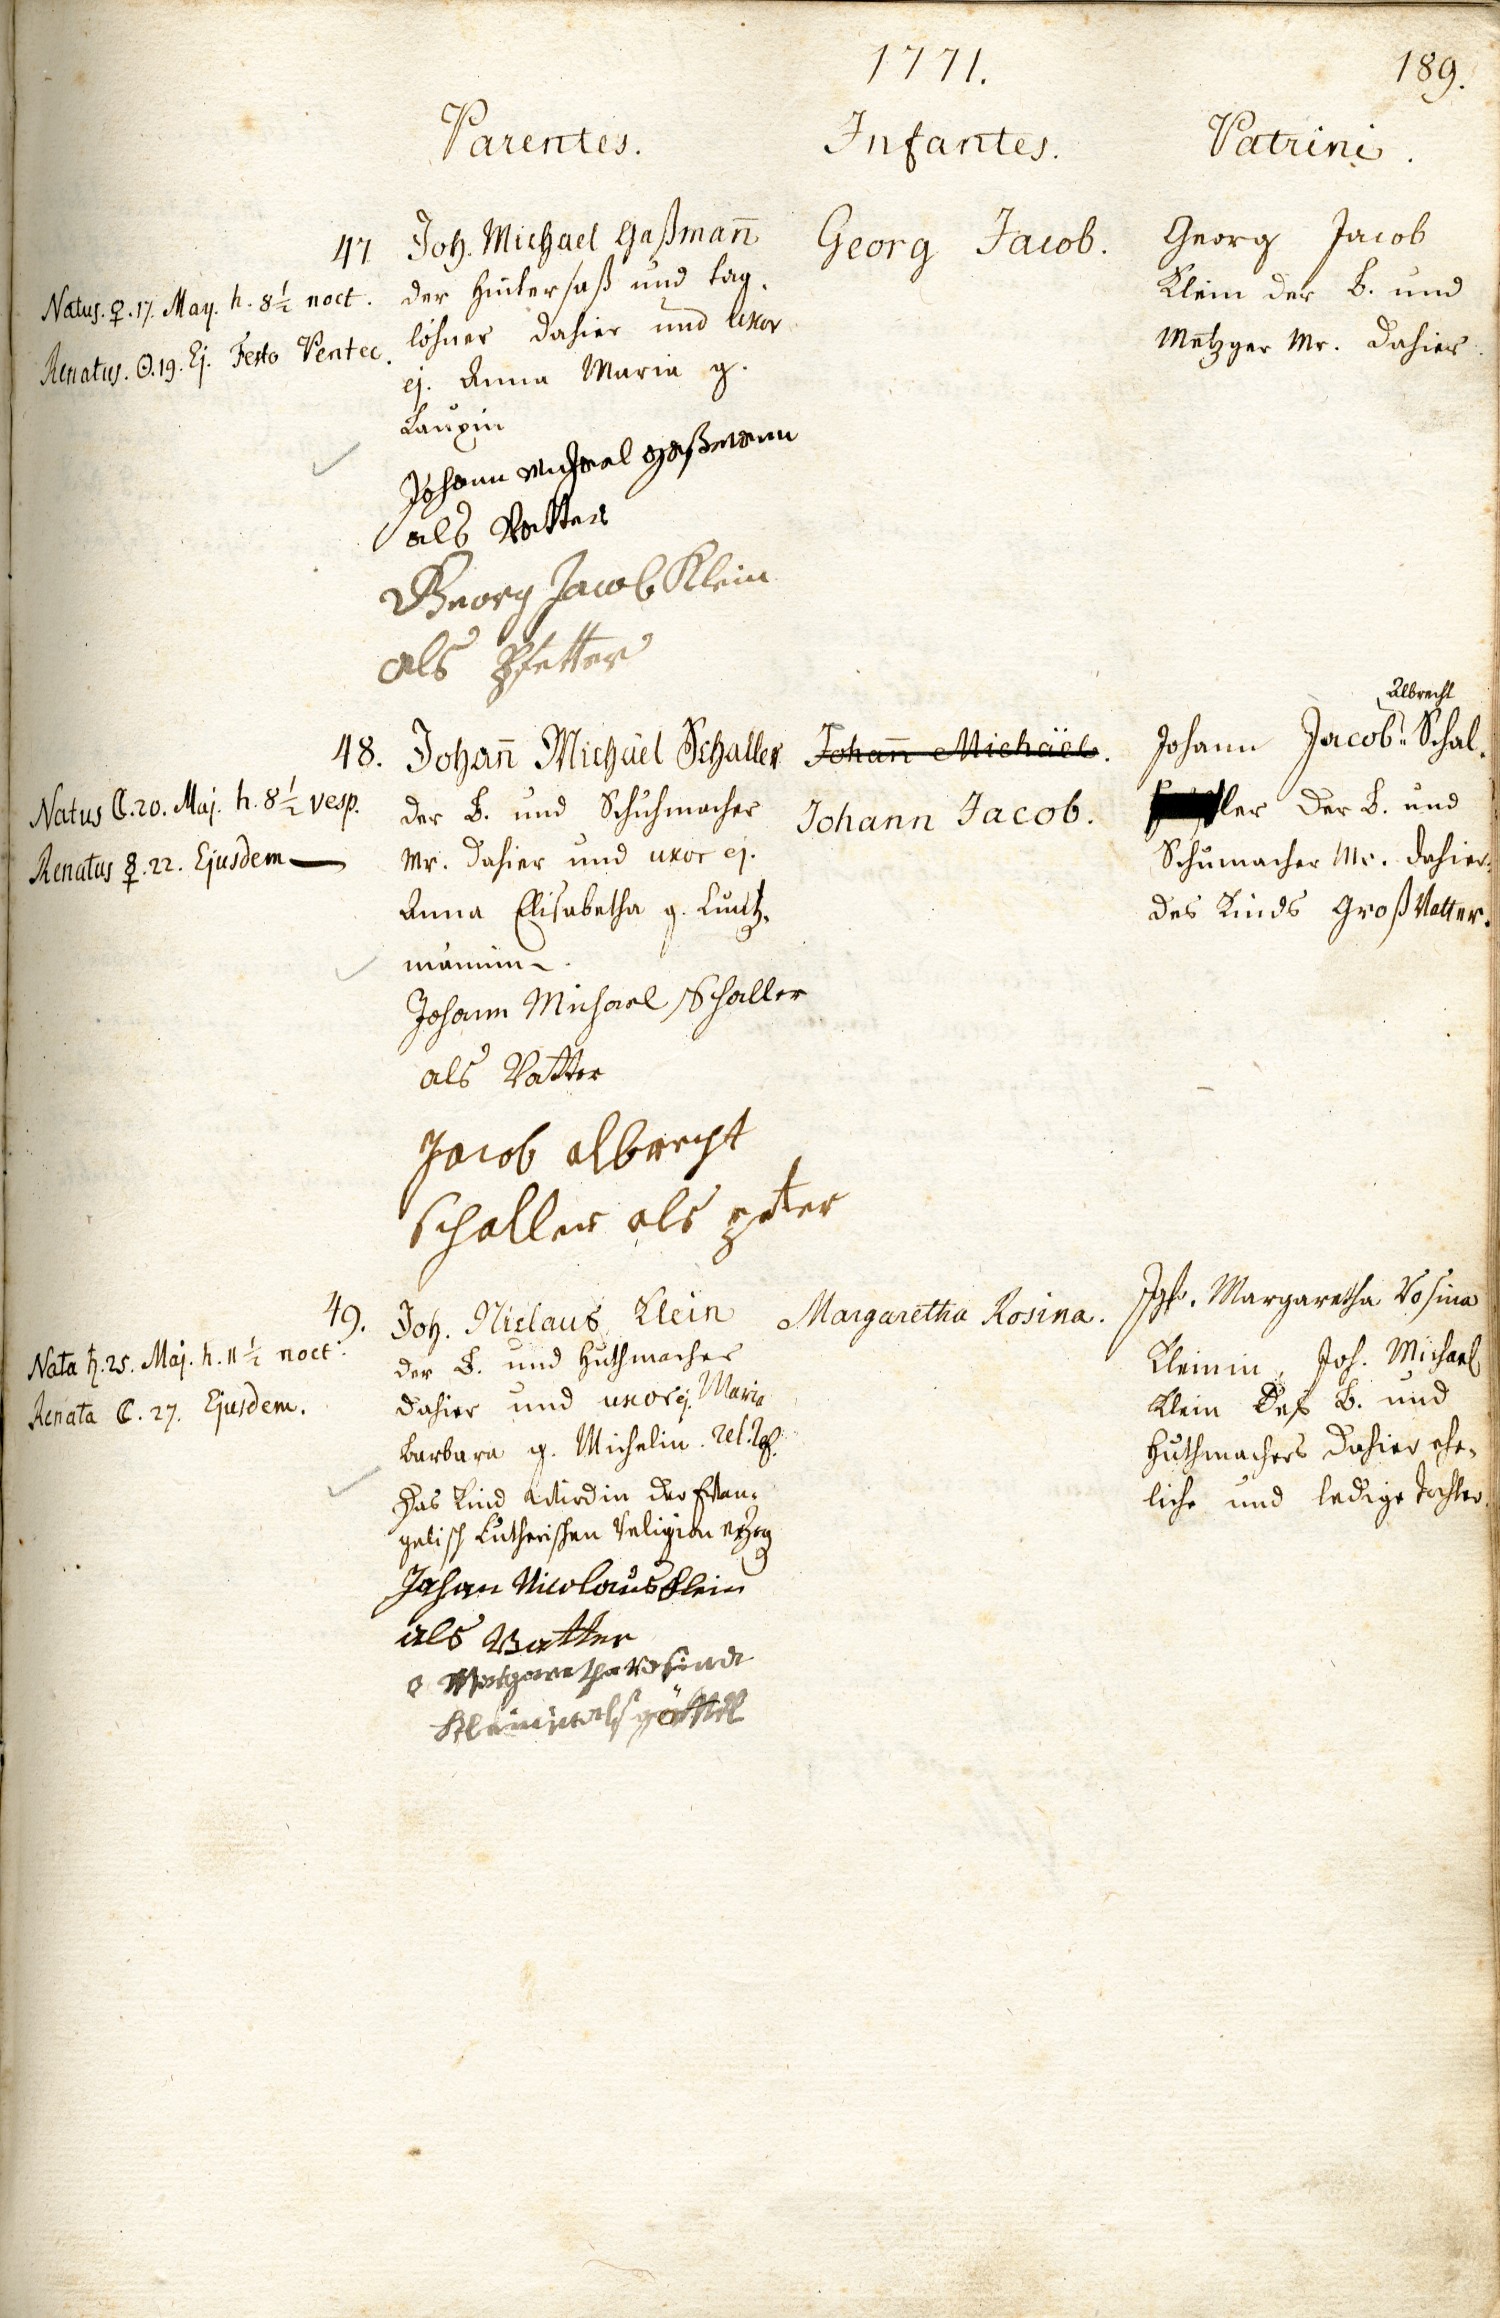 1771.
189.
Parentes.
Infantes.
Patrini.
47
Natus. ♀. 17. May. h. 8½ noct.
Renatus. ☉. 19. Ej. Festo Pentec.
Joh. Michael Gaßmañ
der Hintersaß und tag-
löhner dahier und uxor
ej. Anna Maria g.
Laupin
Johann Michael gaßmann
als Vatter
Georg Jacob Klein
als Pfetter
Georg Jacob.
Georg Jacob
Klein der B. und
Metzger Mr. dahier.
48.
Natus ☾. 20. Maj. h. 8½ vesp.
Renatus ☿. 22. Ejusdem
Johañ Michäel Schaller
der B. und Schuhmacher
Mr. dahier und uxor ej.
Anna Elisabetha g. Cuntz-
männin.
Johann Michael Schaller
als Vatter
Jacob albrecht
schaller als pater
Johañ Michäel.
Johann Jacob.
Albrecht
Johann Jacob Schal-
ler der B. und
Schumacher Mr. dahier.
des Kinds GroßVatter.
49.
Nata ♄. 25. Maj. h. 11½ noct.
Renata ☾. 27. Ejusdem.
Joh. Niclaus Klein
der B. und Huthmacher
dahier und uxor ej. Maria
Barbara g. Michelin. rel.
Das Kind wird in der Evan-
gelisch Lutherischen Religion erzog
Johan Nicolaus Klein
als Vatter
Margaretha rosina
Kleinin als göttel
Margaretha Rosina.
Jgfr. Margaretha Rosina
Kleinin, Joh. Michael
Klein des B. und
Huthmachers dahier ehe-
liche und ledige Tochter.